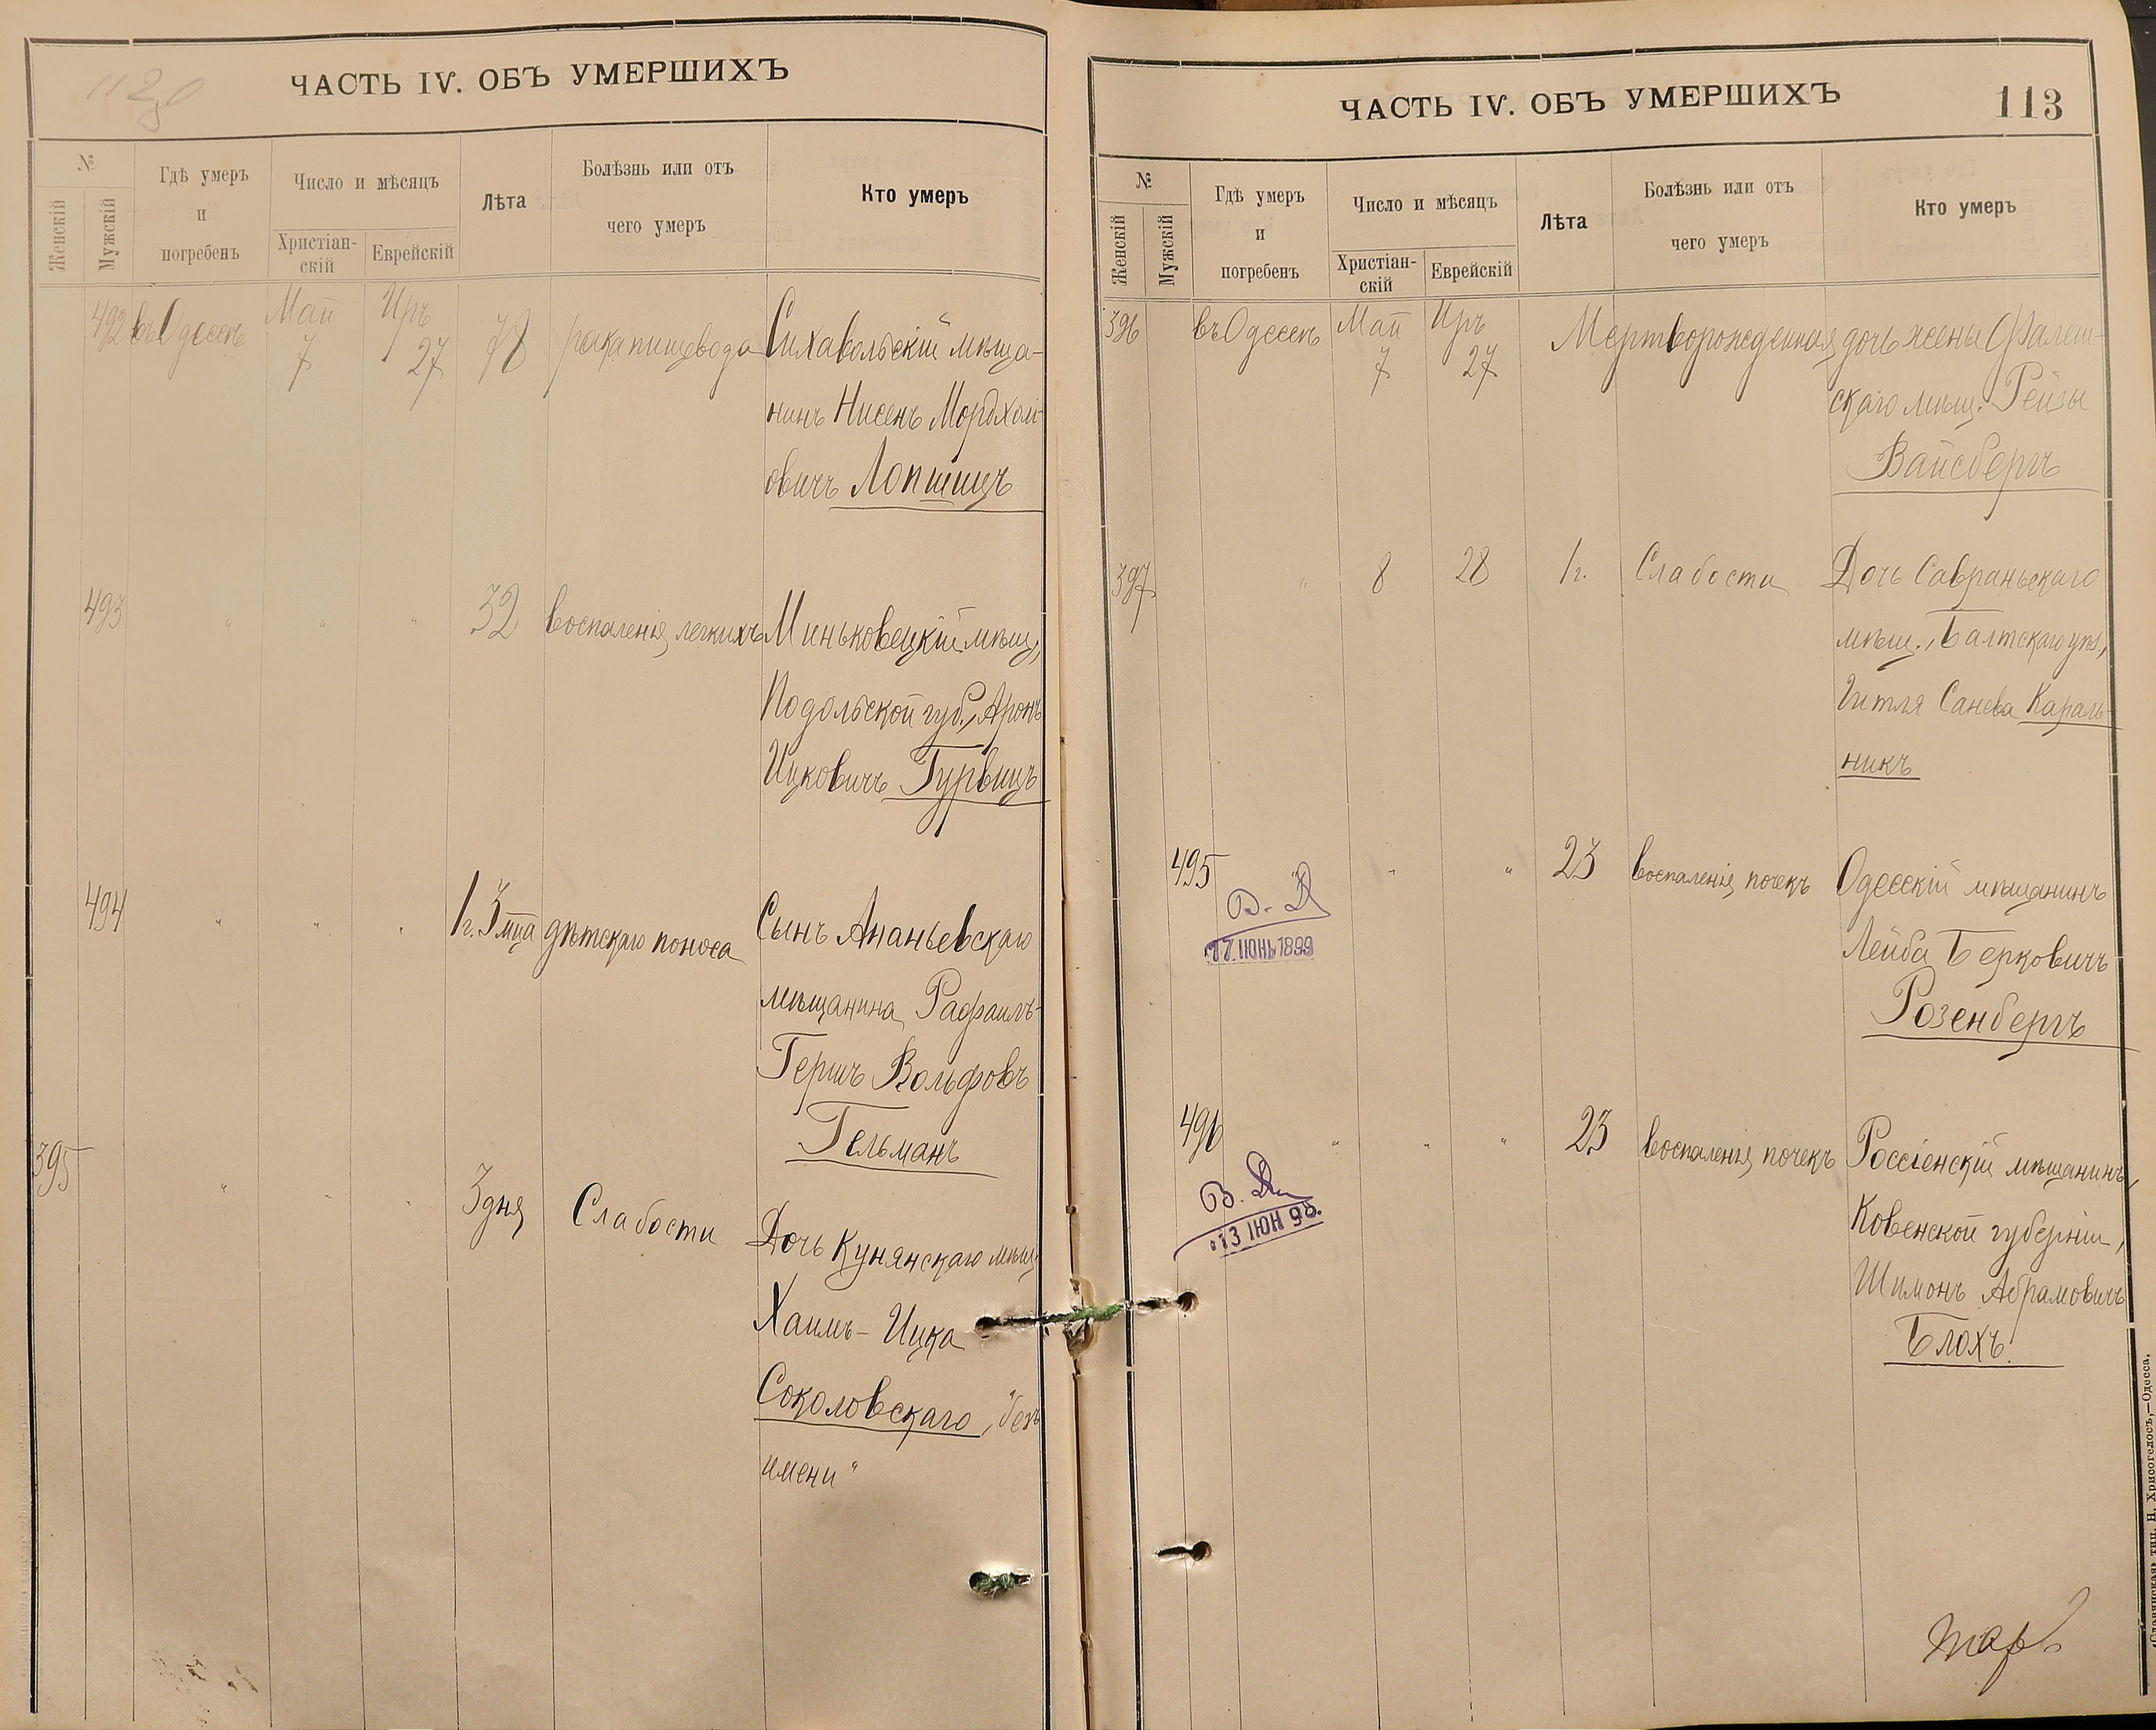 ЧАСТЬ IV. ОБЪ УМЕРШИХЪ
№
Женскій
Мужскій
Гдѣ умеръ
и
погребенъ
Число и мѣсяцъ
Христіан-
скій
Еврейскій
Лѣта
Болѣзнь или отъ
чего умеръ
Кто умеръ
492 въ Одессѣ Май 7 Иръ 27 78 рака пищевода Сихавольскій мѣща-
нинъ Нисенъ Мордхай-
овичъ Лопшицъ
493 " " " 32 воспаленія легкихъ Миньковецкій мѣщ.,
Подольской губ., Аронъ
Ицковичъ Гурвицъ
494 " " " 1 г. 3 мца дѣтскаго поноса Сынъ Ананьевскаго
мѣщанина Рафаилъ-
Гершъ Вольфовъ
Гельманъ
395 " " " 3 дня Слабости Дочь Кунянскаго мѣщ.
Хаимъ-Ицка
Соколовскаго, "безъ
имени"
ЧАСТЬ IV. ОБЪ УМЕРШИХЪ
113
№
Женскій
Мужскій
Гдѣ умеръ
и
погребенъ
Число и мѣсяцъ
Христіан-
скій
Еврейскій
Лѣта
Болѣзнь или отъ
чего умеръ
Кто умеръ
396 въ Одессѣ Май 7 Иръ 27 Мертворожденная дочь жены Фалеш-
скаго мѣщ. Рейзы
Вайсбергъ
397 " 8 28 1 г. Слабости Дочь Савраньскаго
мѣщ., Балтскаго уѣз.,
Гитля Санева Караль-
никъ
495 " " " 23 воспаленія почекъ Одесскій мѣщанинъ
Лейба Берковичъ
Розенбергъ
В. Д.
17 ІЮНЬ 1899
496 " " " 23 воспаленія почекъ Россіенскій мѣщанинъ,
Ковенской губерніи,
Шимонъ Абрамовичъ
Блохъ.
В. Д.
13 ІЮН 98.
«Славянская» тип. Н. Хрисогелосъ,—Одесса.